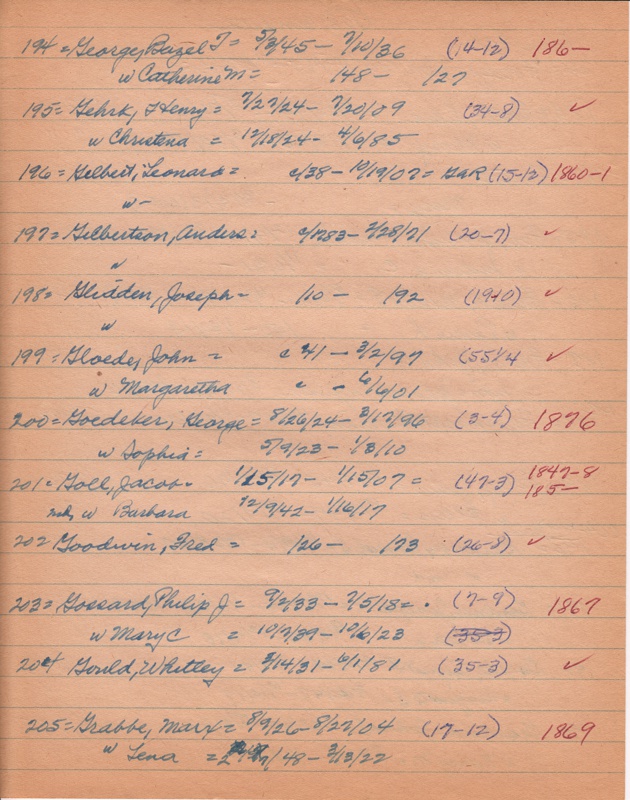 194 = George, Bazel T = 5/3/45 – 7/10/36 (14-12) 186–
w Catherine M = 148 – 127
195 = Gehrk, Henry = 7/27/24 – 7/20/09 (34-8) ✓
w Christena = 12/18/24 – 4/6/85
196 = Gilbert, Leonard = c/38 – 10/19/07 = GAR (15-12) 1860-1
w –
197 = Gilbertson, Anders = c/1783 – 2/28/71 (20-7) ✓
w
198 = Glidden, Joseph = /10 – /92 (19-10) ✓
w
199 = Gloede, John = c 41 – 3/2/97 (55 1/4 ✓
w Margaretha c – 6/6/01
200 = Goedeker, George = 8/26/24 – 3/17/96 (3-4) 1876
w Sophia = 5/9/23 – 1/3/10
201 = Goll, Jacob = 1/15/17 – 1/15/07 = (47-3) 1847-8
185–
2nd, w Barbara 12/9/42 – 1/16/17
202 Goodwin, Fred = /26 – /73 (26-8) ✓
203 = Gossard, Philip J = 9/2/33 – 7/5/18 = (7-9) 1867
w Mary C = 10/7/39 – 10/6/23 (35-3)
204 Gould, Whitley = 5/14/31 – 6/1/81 (35-3) ✓
205 = Grabbe, Marx = 8/9/26 – 8/27/04 (17-12) 1869
w Lena = /48 – 3/13/22